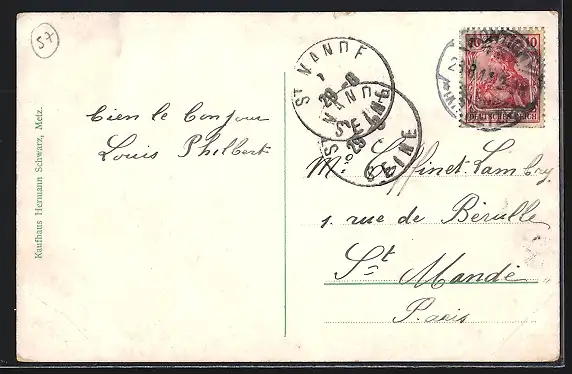 57
Kaufhaus Hermann Schwarz, Metz.
bien le bonjour
Louis Philbert
ST MANDE
28-8
SEINE
ST MANDE
28
SEINE
10
DEUTSCHES REICH
Mr Effinet-Lambry
1. rue de Bérulle
St Mandé
Paris